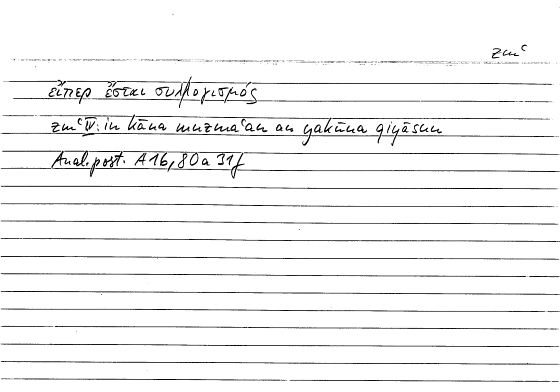 zmʿ
εἴπερ ἔσται συλλογισμός
zmʿ IV: in kāna muzmaʿan an yakūna qiyāsun
Anal. post. A 16, 80 a 31f